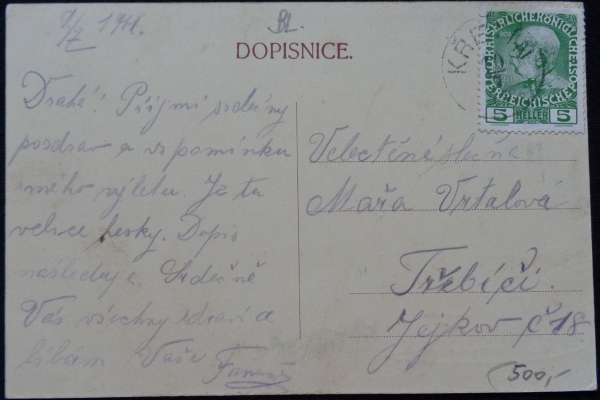 9/7 1911.
BL.
DOPISNICE.
KAISERLICHE KÖNIGLICHE ÖSTERREICHISCHE
5 HELLER 5
Drahá! Přijmi srdečný
pozdrav a vzpomínku
mého výletu. Je tu
velice hezky. Dopis
následuje. Srdečně
Vás všechny zdraví a
líbám Vaše
Velectěná slečna
Mařa Vrtalová
Třebíči.
Jejkov č 18
500,-